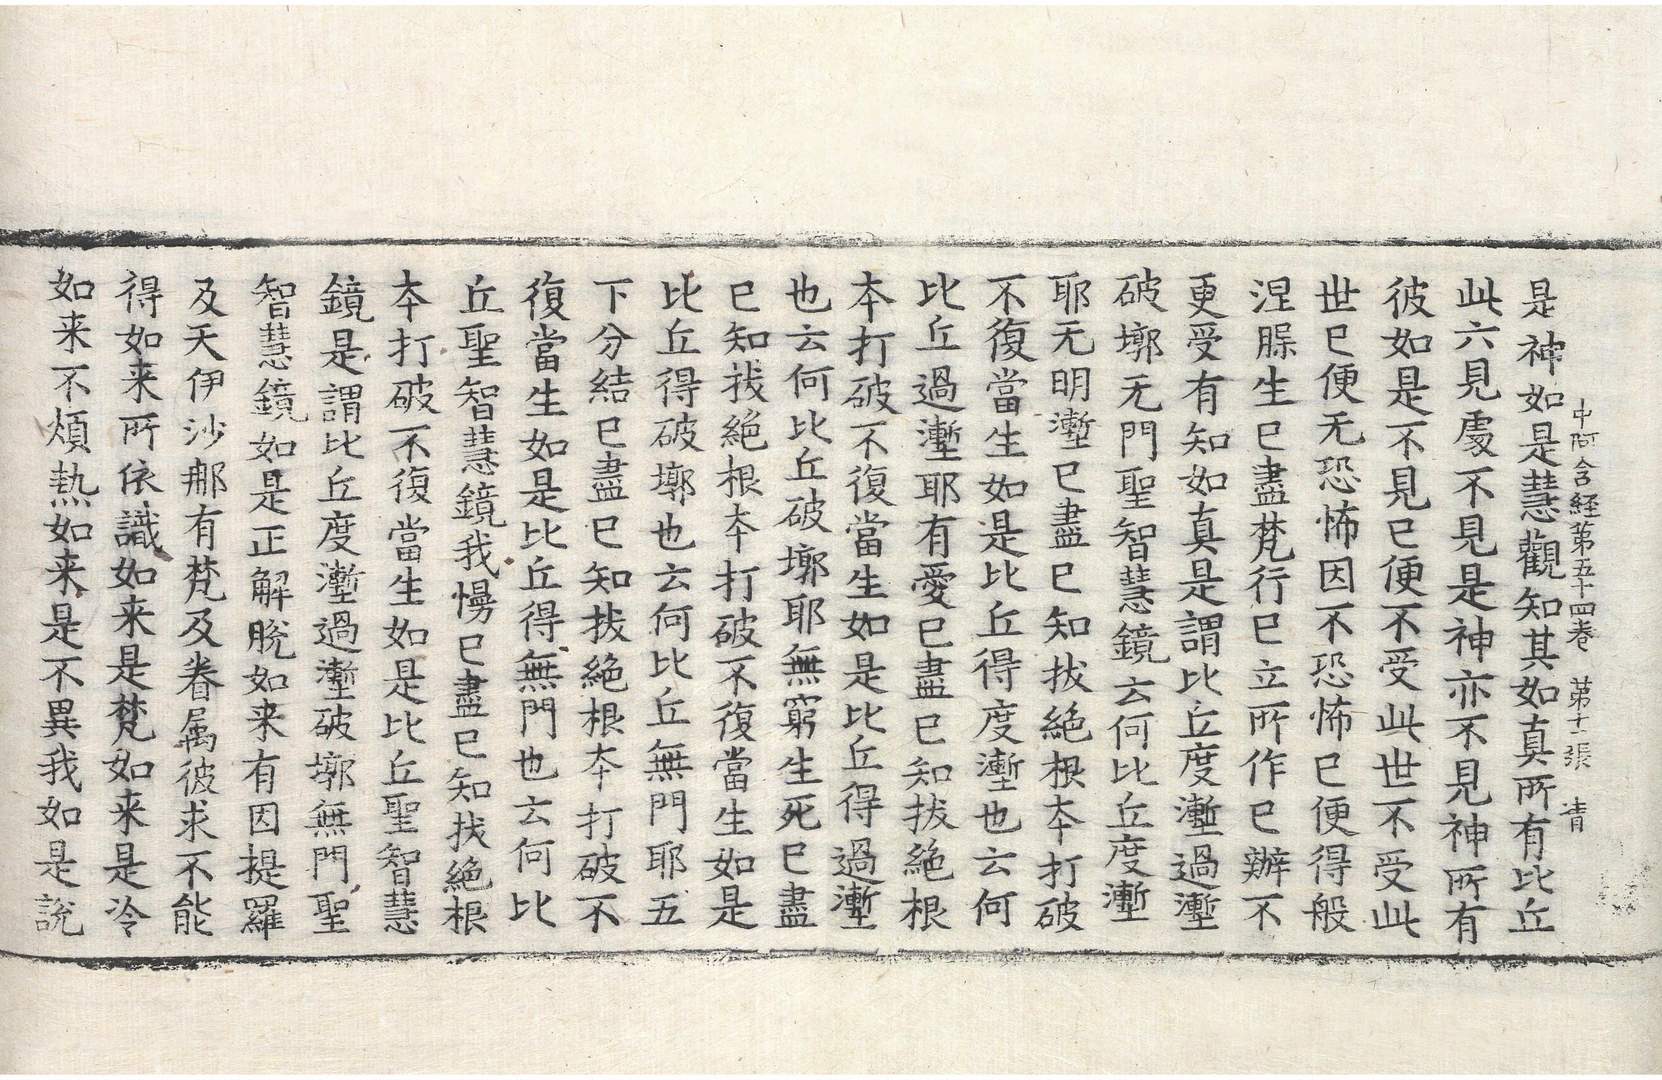 中阿含経第五十四卷 第十一張 清
是神如是慧觀知其如真所有比丘
此六見處不見是神亦不見神所有
彼如是不見已便不受此世不受此
世已便无恐怖因不恐怖已便得般
涅槃生已盡梵行已立所作已辦不
更受有知如真是謂比丘度塹過塹
破墎无門聖智慧鏡云何比丘度塹
耶无明塹已盡已知拔絕根夲打破
不復當生如是比丘得度塹也云何
比丘過塹耶有愛已盡已知拔絕根
夲打破不復當生如是比丘得過塹
也云何比丘破墎耶無窮生死已盡
已知拔絕根夲打破不復當生如是
比丘得破墎也云何比丘無門耶五
下分結已盡已知拔絕根夲打破不
復當生如是比丘得無門也云何比
丘聖智慧鏡我慢已盡已知拔絕根
夲打破不復當生如是比丘聖智慧
鏡是謂比丘度塹過塹破墎無門聖
智慧鏡如是正解脫如来有因提羅
及天伊沙那有梵及眷属彼求不能
得如来所依識如来是梵如来是冷
如来不煩熱如来是不異我如是說